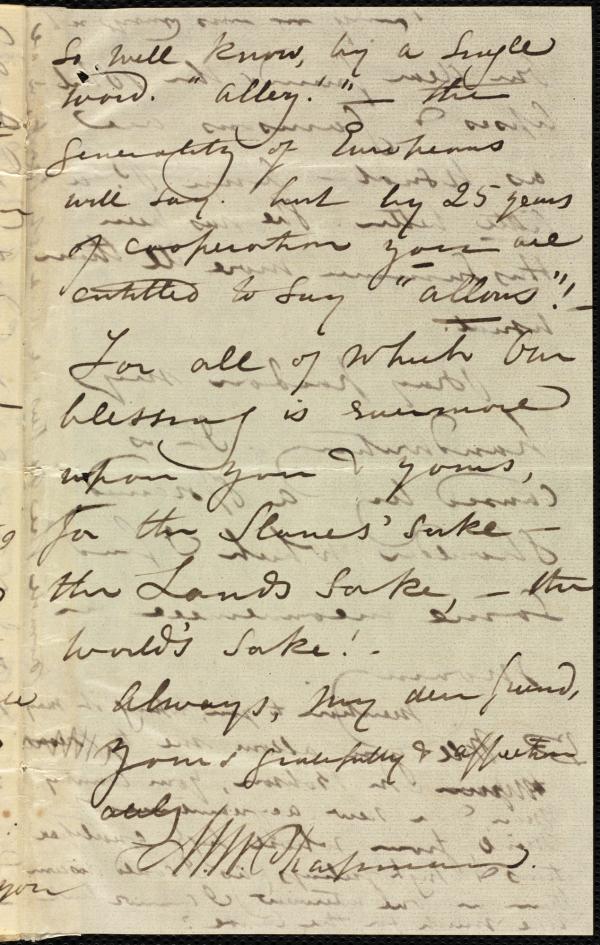 So well know, by a single
word. "allez."— the
generality of Europeans
will say. but by 25 years
of cooperation you are
entitled to say "allons"!
For all of which Our
blessing is evermore
upon you & yours,
for the Slaves' sake —
the Lands sake, — the
world's sake! -
Always, my dear friend,
Yours gratefully & affection
ately
M W Chapman.
you